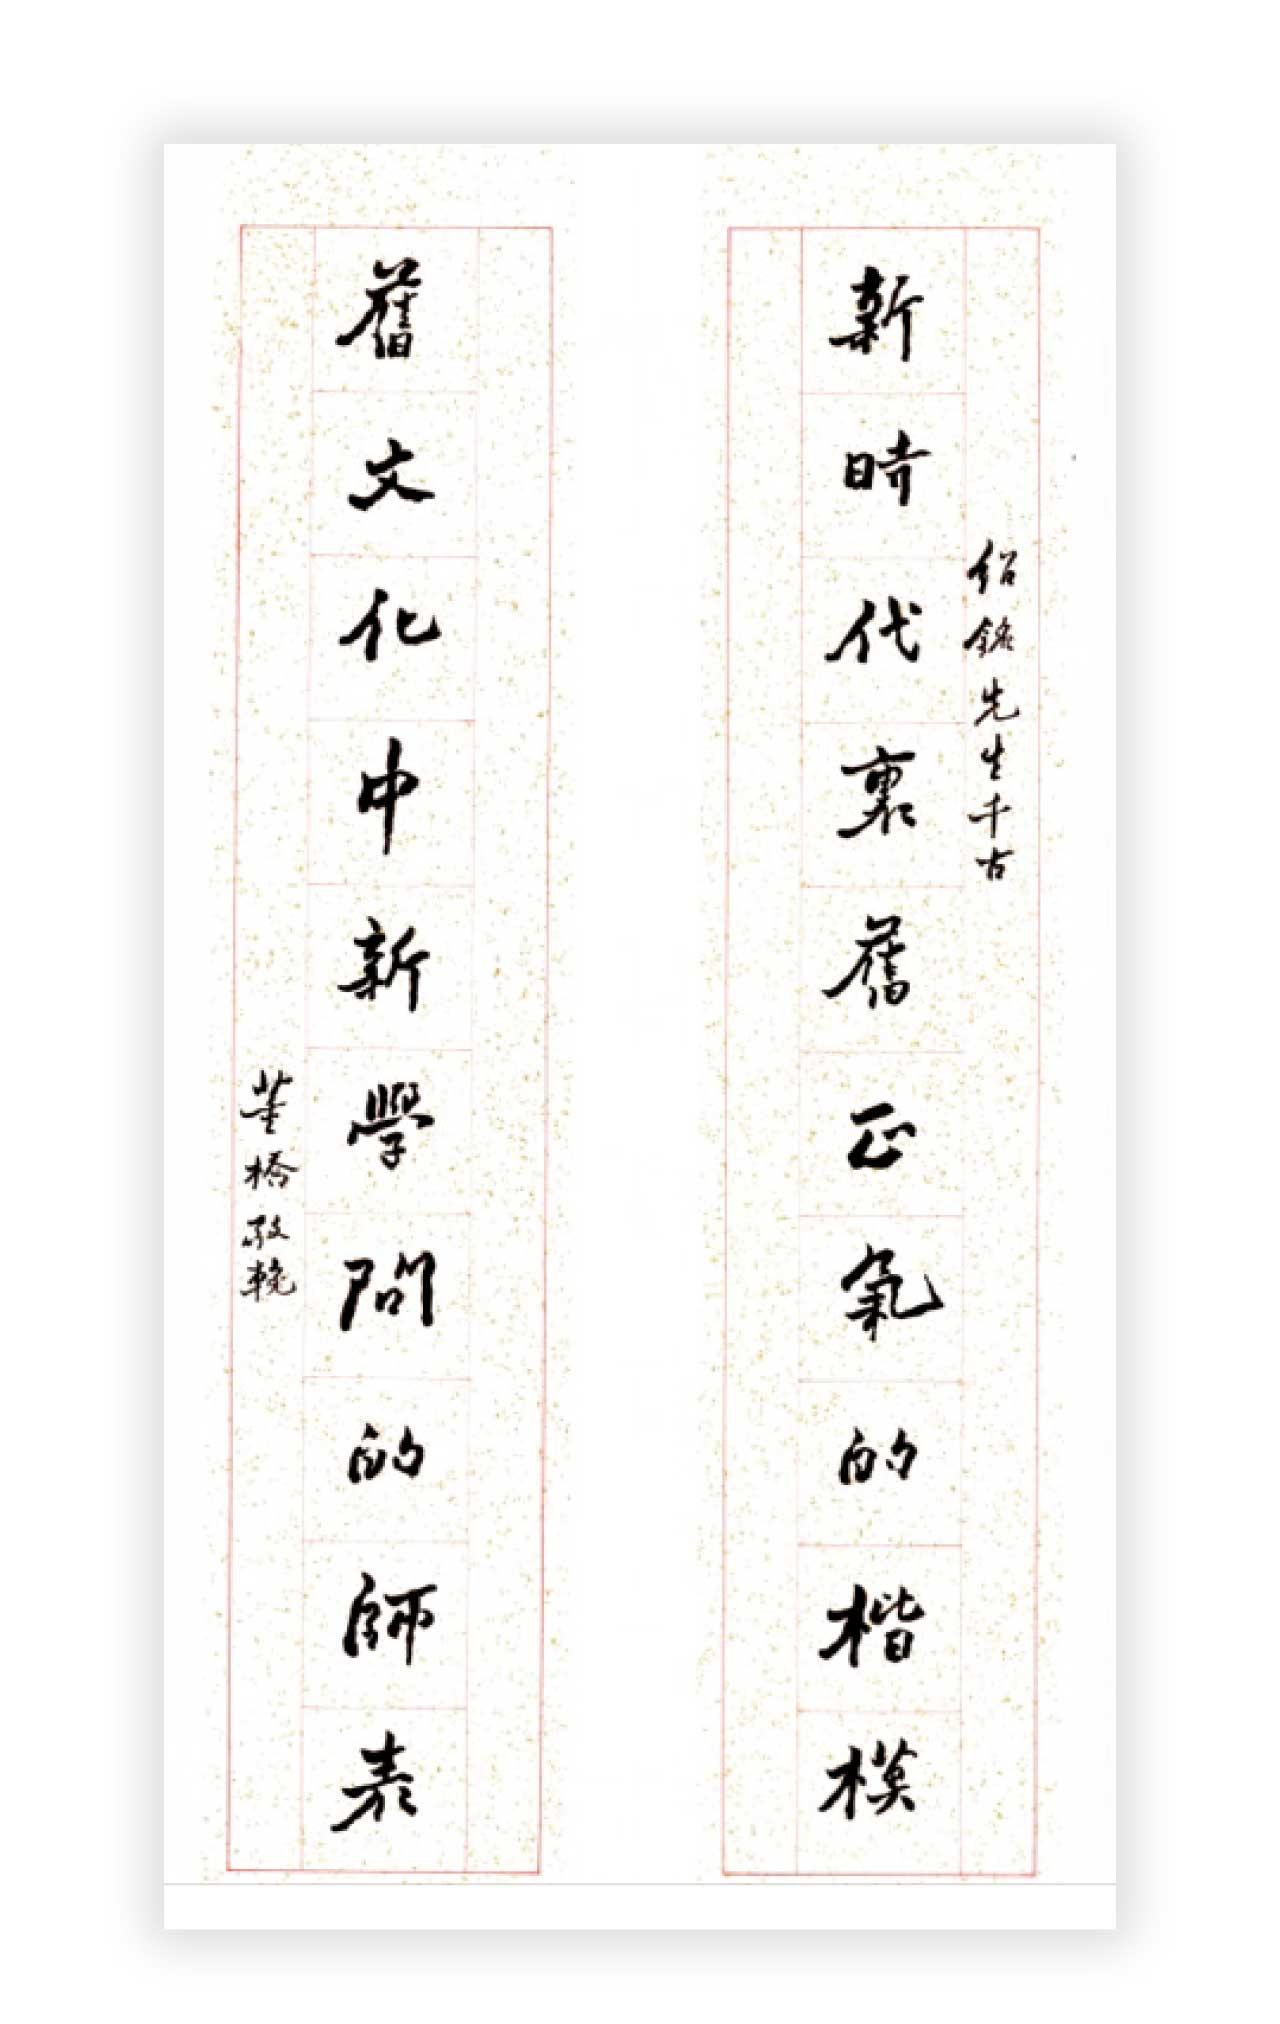 紹鎏先生千古
新時代裏舊正氣的楷模
舊文化中新學問的師表
董橋敬輓